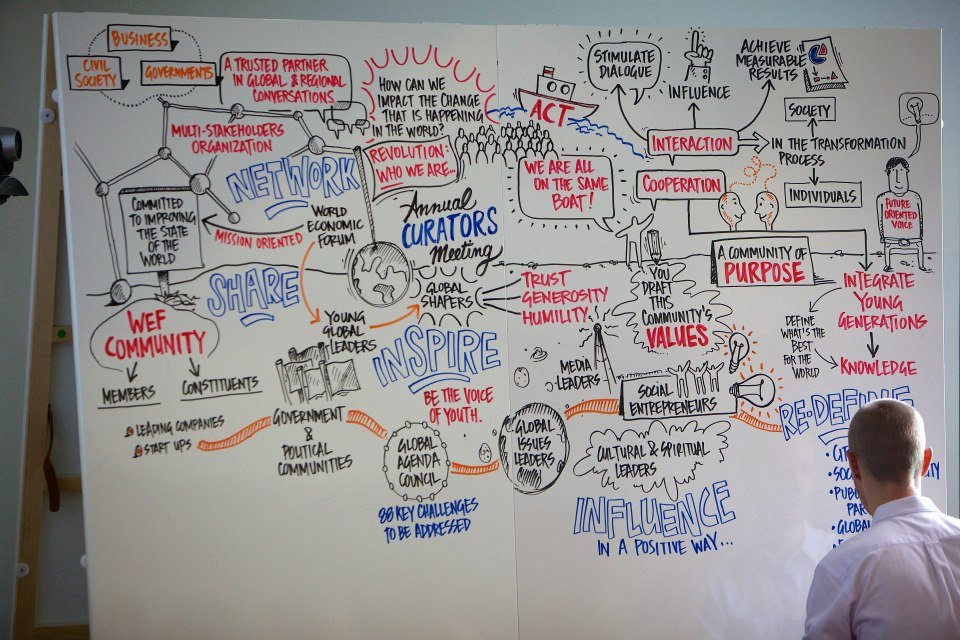 BUSINESS
CIVIL
SOCIETY
GOVERNMENTS
A TRUSTED PARTNER
IN GLOBAL & REGIONAL
CONVERSATIONS
MULTI-STAKEHOLDERS
ORGANIZATION
NETWORK
COMMITTED
TO IMPROVING
THE STATE
OF THE
WORLD
MISSION ORIENTED
WORLD
ECONOMIC
FORUM
HOW CAN WE
IMPACT THE CHANGE
THAT IS HAPPENING
IN THE WORLD?
REVOLUTION:
WHO WE ARE...
Annual
CURATORS
Meeting
SHARE
YOUNG
GLOBAL
LEADERS
GLOBAL
SHAPERS
TRUST
GENEROSITY
HUMILITY
WEF
COMMUNITY
MEMBERS
CONSTITUENTS
LEADING COMPANIES
START UPS
GOVERNMENT
&
POLITICAL
COMMUNITIES
INSPIRE
BE THE VOICE
OF YOUTH.
GLOBAL
AGENDA
COUNCIL
88 KEY CHALLENGES
TO BE ADDRESSED
GLOBAL
ISSUES
LEADERS
ACT
WE ARE ALL
ON THE SAME
BOAT!
STIMULATE
DIALOGUE
INFLUENCE
ACHIEVE
MEASURABLE
RESULTS
INTERACTION
SOCIETY
IN THE TRANSFORMATION
PROCESS
INDIVIDUALS
COOPERATION
A COMMUNITY OF
PURPOSE
FUTURE
ORIENTED
VOICE
INTEGRATE
YOUNG
GENERATIONS
KNOWLEDGE
DEFINE
WHAT'S THE
BEST
FOR THE
WORLD
YOU
DRAFT THIS
COMMUNITY'S
VALUES
MEDIA
LEADERS
SOCIAL
ENTREPRENEURS
CULTURAL & SPIRITUAL
LEADERS
INFLUENCE
IN A POSITIVE WAY...
RE-DEFINE